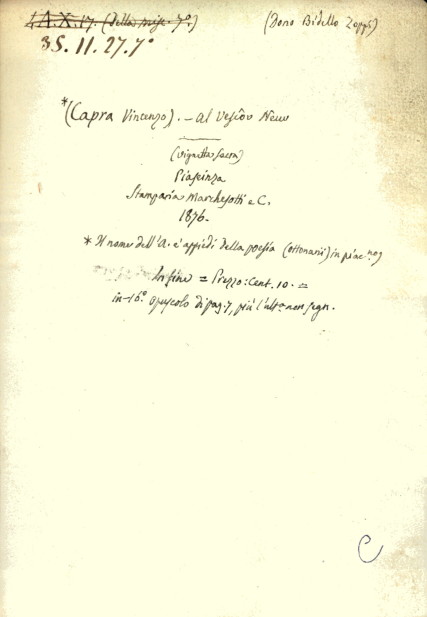 A.X.17. (della misc. 7º.) (Dono Bidello Zoppi)
35.11.27.7º
*(Capra Vincenzo). – Al Vescôv Neuv
(vignetta sacra)
Piaseinza
Stamparia Marchesotti e C.
1876.
* Il nome dell'A. è appiedi della poesia (ottonarii) in piac.no)
In fine = Prezzo: Cent. 10. =
in-16º opuscolo di pag. 7, più l'ult.ª non segn.
C